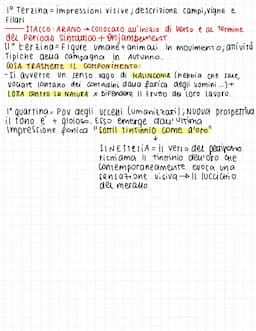 1° Terzina = impressioni visive; descrizione campi, vigne e
filari
→ STACCO: ARANO → collocato all'inizio di verso e al termine
del periodo sintattico + enjambement
11° terzina = figure umane + animali in movimento, attività
tipiche della campagna in autunno.
COSA TRASMETTE IL COMPONIMENTO:
- Si avverte un senso vago di MALINCONIA (nebbia che sale,
vociare lontano dei contadini dalla fatica degli uomini...) +
LORO contro la NATURA x difendere il frutto del loro lavoro.
1° quartina = POV degli uccelli (umanizzati); nuova prospettiva
il tono è + gioioso. Esso emerge dall'ultima
impressione fonica "sottil tintinnio come d'oro"
↓
SINESTESIA = il verso del pettirosso
richiama il tintinnio dell'oro che
contemporaneamente evoca una
sensazione visiva → il luccichio
del metallo